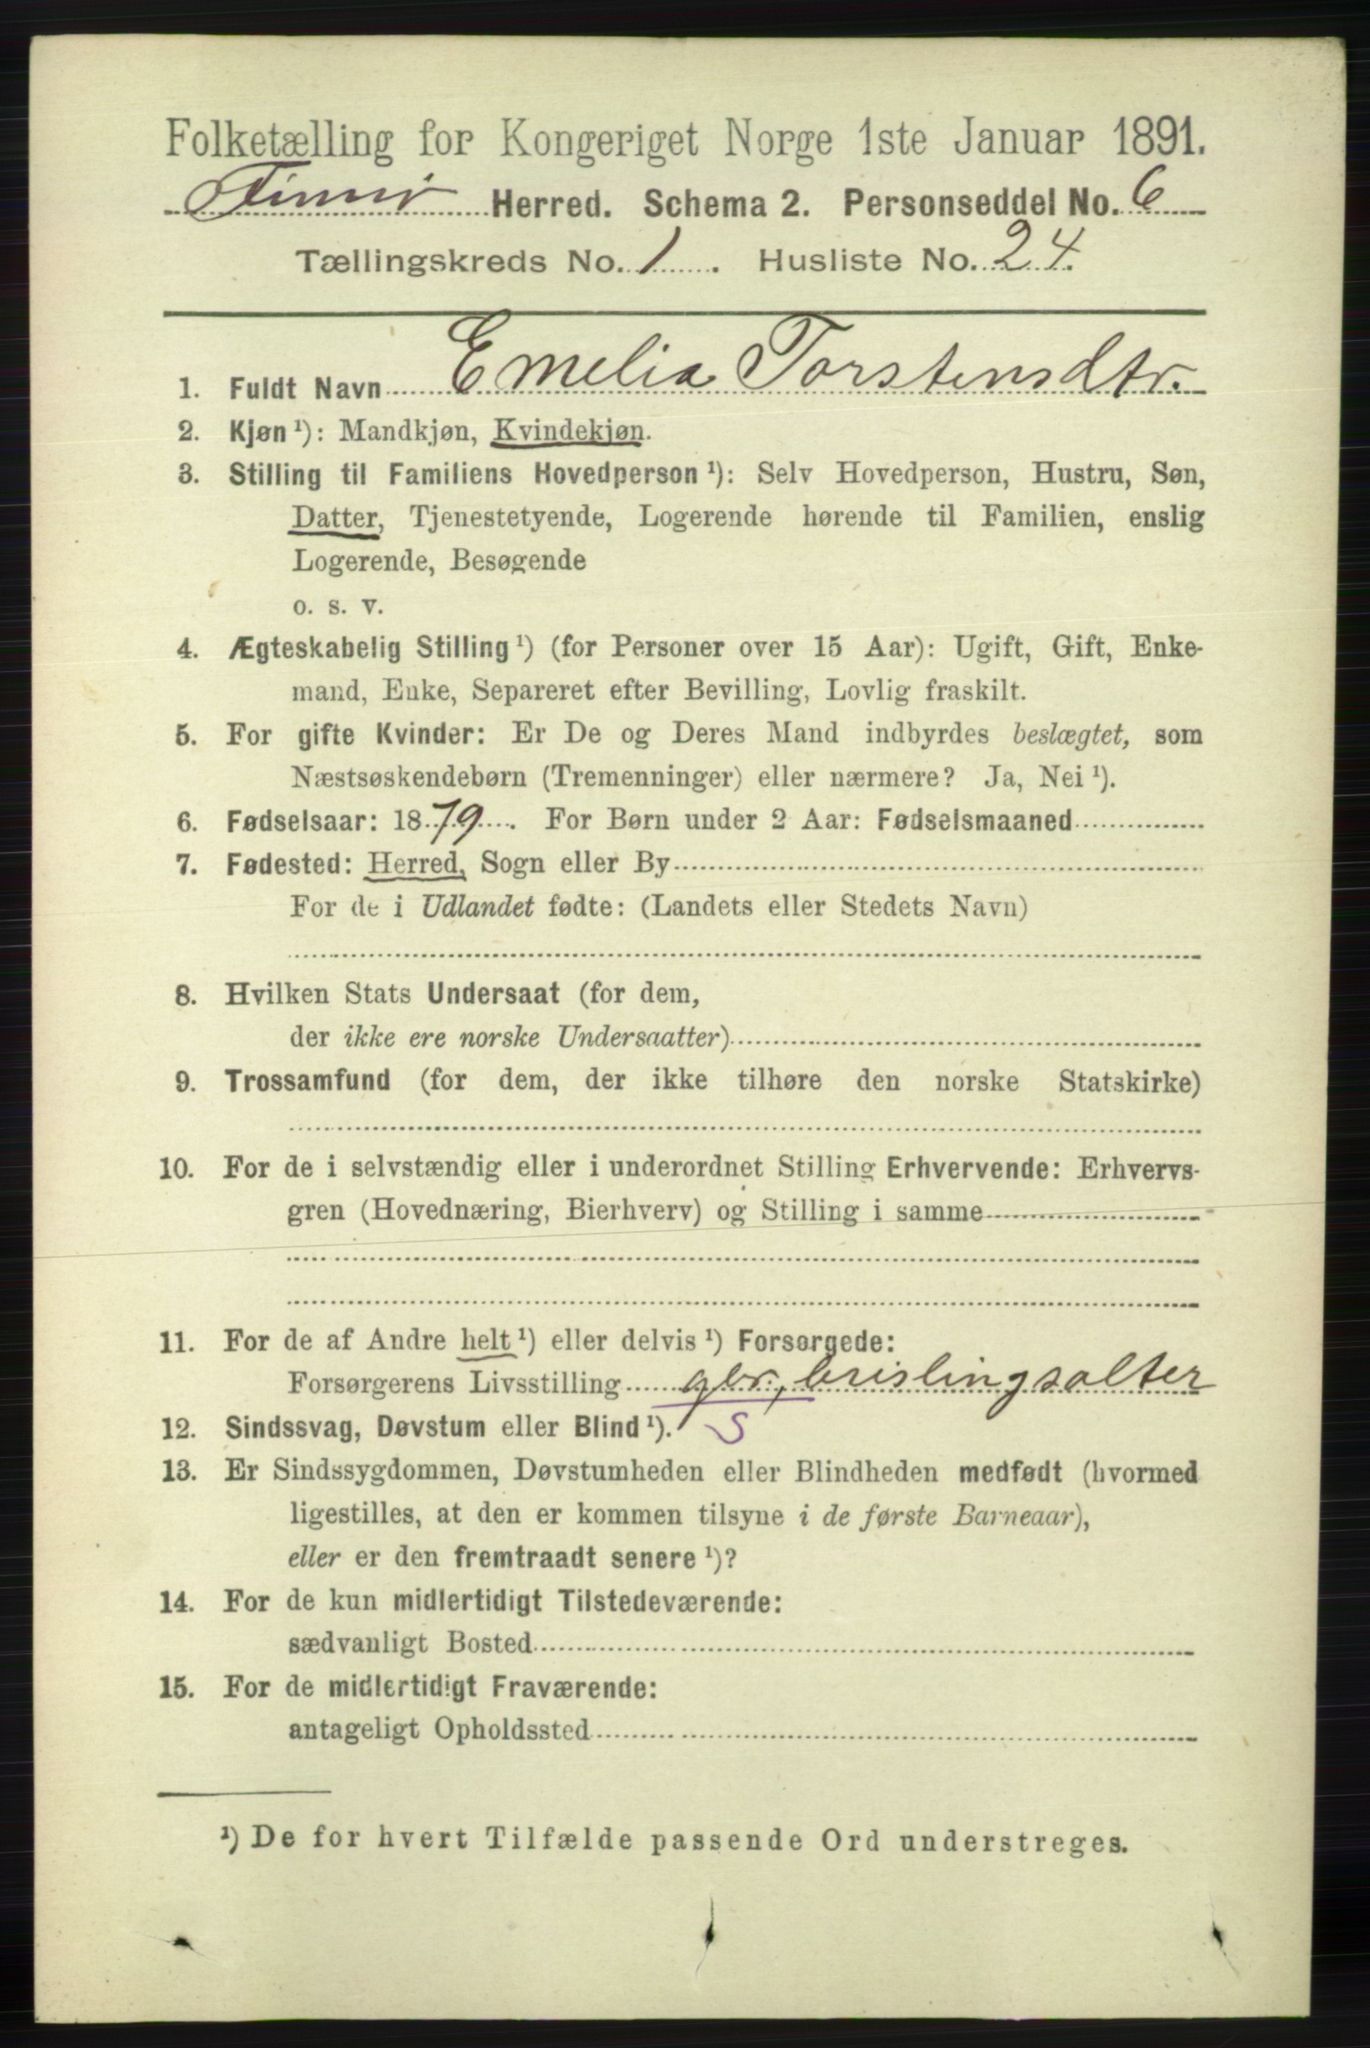 Folketælling for Kongeriget Norge 1ste Januar 1891.
Finnø Herred. Schema 2. Personseddel No. 6
Tællingskreds No. 1. Husliste No. 24.
1. Fuldt Navn Emelia Torstensdtr.
2. Kjøn ¹): Mandkjøn, Kvindekjøn.
3. Stilling til Familiens Hovedperson ¹): Selv Hovedperson, Hustru, Søn,
Datter, Tjenestetyende, Logerende hørende til Familien, enslig
Logerende, Besøgende
o. s. v.
4. Ægteskabelig Stilling ¹) (for Personer over 15 Aar): Ugift, Gift, Enke-
mand, Enke, Separeret efter Bevilling, Lovlig fraskilt.
5. For gifte Kvinder: Er De og Deres Mand indbyrdes beslægtet, som
Næstsøskendebørn (Tremenninger) eller nærmere? Ja, Nei ¹).
6. Fødselsaar: 1879. For Børn under 2 Aar: Fødselsmaaned
7. Fødested: Herred, Sogn eller By
For de i Udlandet fødte: (Landets eller Stedets Navn)
8. Hvilken Stats Undersaat (for dem,
der ikke ere norske Undersaatter)
9. Trossamfund (for dem, der ikke tilhøre den norske Statskirke)
10. For de i selvstændig eller i underordnet Stilling Erhvervende: Erhvervs-
gren (Hovednæring, Bierhverv) og Stilling i samme
11. For de af Andre helt ¹) eller delvis ¹) Forsørgede:
Forsørgerens Livsstilling gbr., brislingsalter
12. Sindssvag, Døvstum eller Blind ¹). S
13. Er Sindssygdommen, Døvstumheden eller Blindheden medfødt (hvormed
ligestilles, at den er kommen tilsyne i de første Barneaar),
eller er den fremtraadt senere ¹)?
14. For de kun midlertidigt Tilstedeværende:
sædvanligt Bosted
15. For de midlertidigt Fraværende:
antageligt Opholdssted
¹) De for hvert Tilfælde passende Ord understreges.